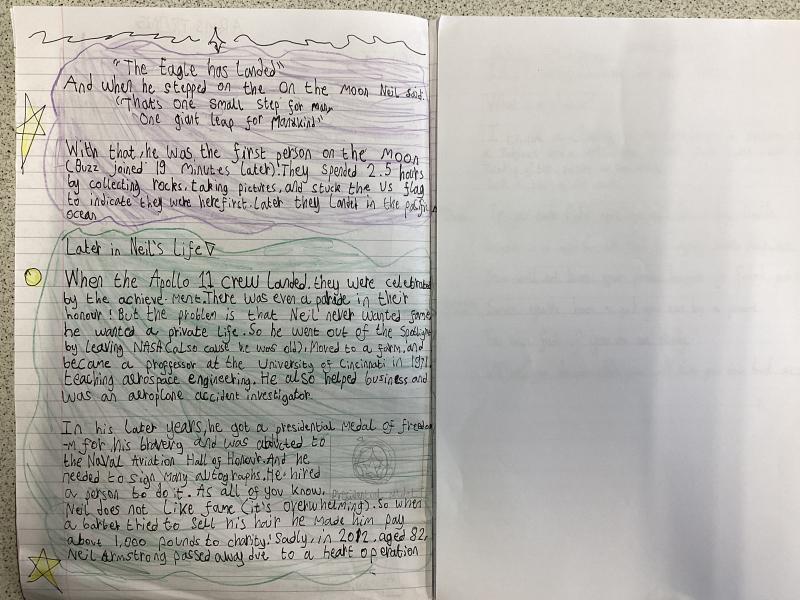 "The Eagle has Landed"
And when he stepped on the on the Moon Neil said.
"That's one small step for man,
One giant leap for Mankind"
With that, he was the first person on the Moon
(Buzz joined 19 minutes later)! They spended 2.5 hours
by collecting rocks, taking pictures, and stuck the US flag
to indicate they were here first. Later they Landed in the pacific
ocean
Later in Neil's Life
When the Apollo 11 crew Landed, they were celebrated
by the achieve-ment. There was even a paride in their
honour! But the problem is that Neil never wanted fame
he wanted a private life. So he went out of the Spotlight
by leaving NASA (also cause he was old), Moved to a farm, and
became a proggessor at the University of Cincinnati in 1971,
teaching aerospace engineering. He also helped business and
was an aeroplane accident investigator.
In his later years, he got a presidential Medal of freedo
-m for his bravery and was abducted to
the Naval Aviation Hall of Honour. And he
needed to sign many autographs. He hired
a person to do it. As all of you know,
Presidential
Neil does not Like fame (it's overwhelming). So when
a barber tried to sell his hair he made him pay
about 1,000 pounds to charity! Sadly, in 2012, aged 82,
Neil Armstrong passed away due to a heart operation